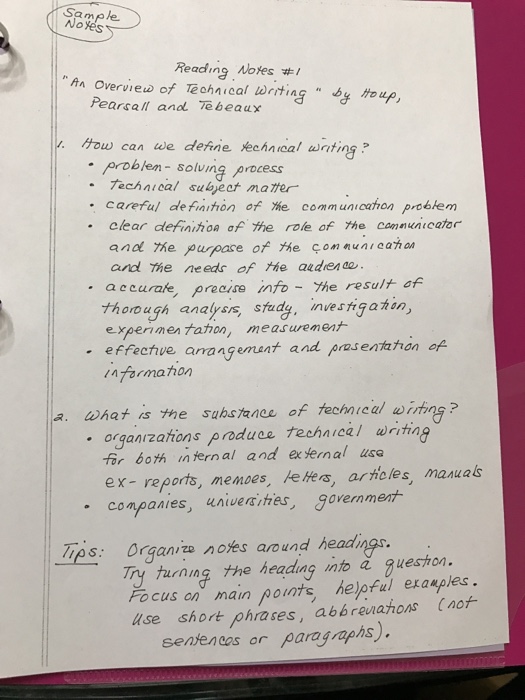 Sample
Notes
Reading Notes #1
"An Overview of Technical Writing" by Houp,
Pearsall and Tebeaux
1. How can we define technical writing?
• problem-solving process
• Technical subject matter
• careful definition of the communication problem
• clear definition of the role of the communicator
and the purpose of the communication
and the needs of the audience.
• accurate, precise info - the result of
thorough analysis, study, investigation,
experimentation, measurement
• effective arrangement and presentation of
information
2. What is the substance of technical writing?
• organizations produce technical writing
for both internal and external use
ex- reports, memoes, letters, articles, manuals
• companies, universities, government
Tips: Organize notes around headings.
Try turning the heading into a question.
Focus on main points, helpful examples.
Use short phrases, abbreviations (not
sentences or paragraphs).